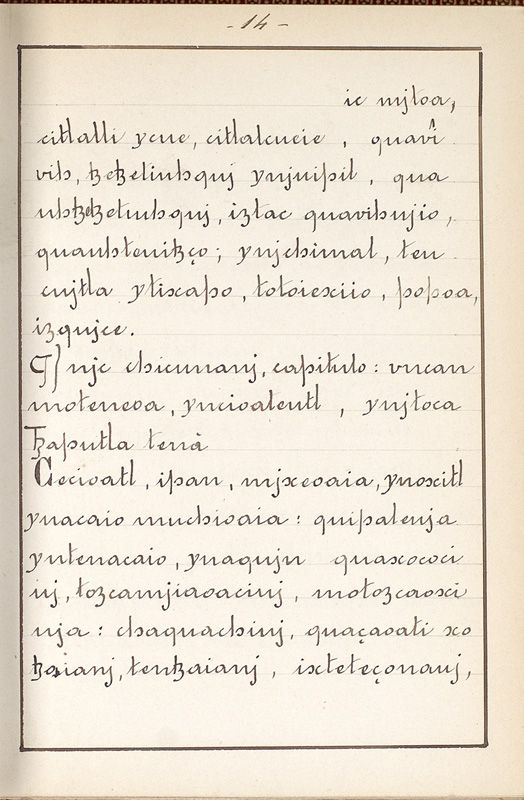 - 14 -
ic mjtoa,
citlalli ycue, citlalcueie, quavi
vih, tzetzeliuhquj ynjuipil, qua
uhtzetzetiuhquj, iztac quavihujio,
quauhtenitzço; ynjchimal, ten
cujtla ytixapo, totoiexiio, popoa,
izqujce.
¶ njc chicunanj, capitulo: vncan
moteneoa, yncioateutl, ynjtoca
Tzaputla tenà
Cecioatl, ipan, mjxeoaia, ynoxitl
ynacaio muchioaia: quipaleuja
yntenacaio, ynaqujn quaxococi
uj, tozcamjiaoaciuj, motozcaoxi
uja: chaquachiuj, quaçaoati xo
tzaianj, tentzaianj, ixteteçonauj,